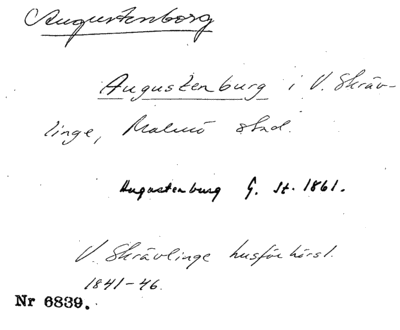 Augustenborg
Augustenburg i V. Skräv-
linge, Malmö stad.
Augustenburg G. St. 1861.
V. Skrävlinge husförhörsl.
1841-46.
Nr 6839.